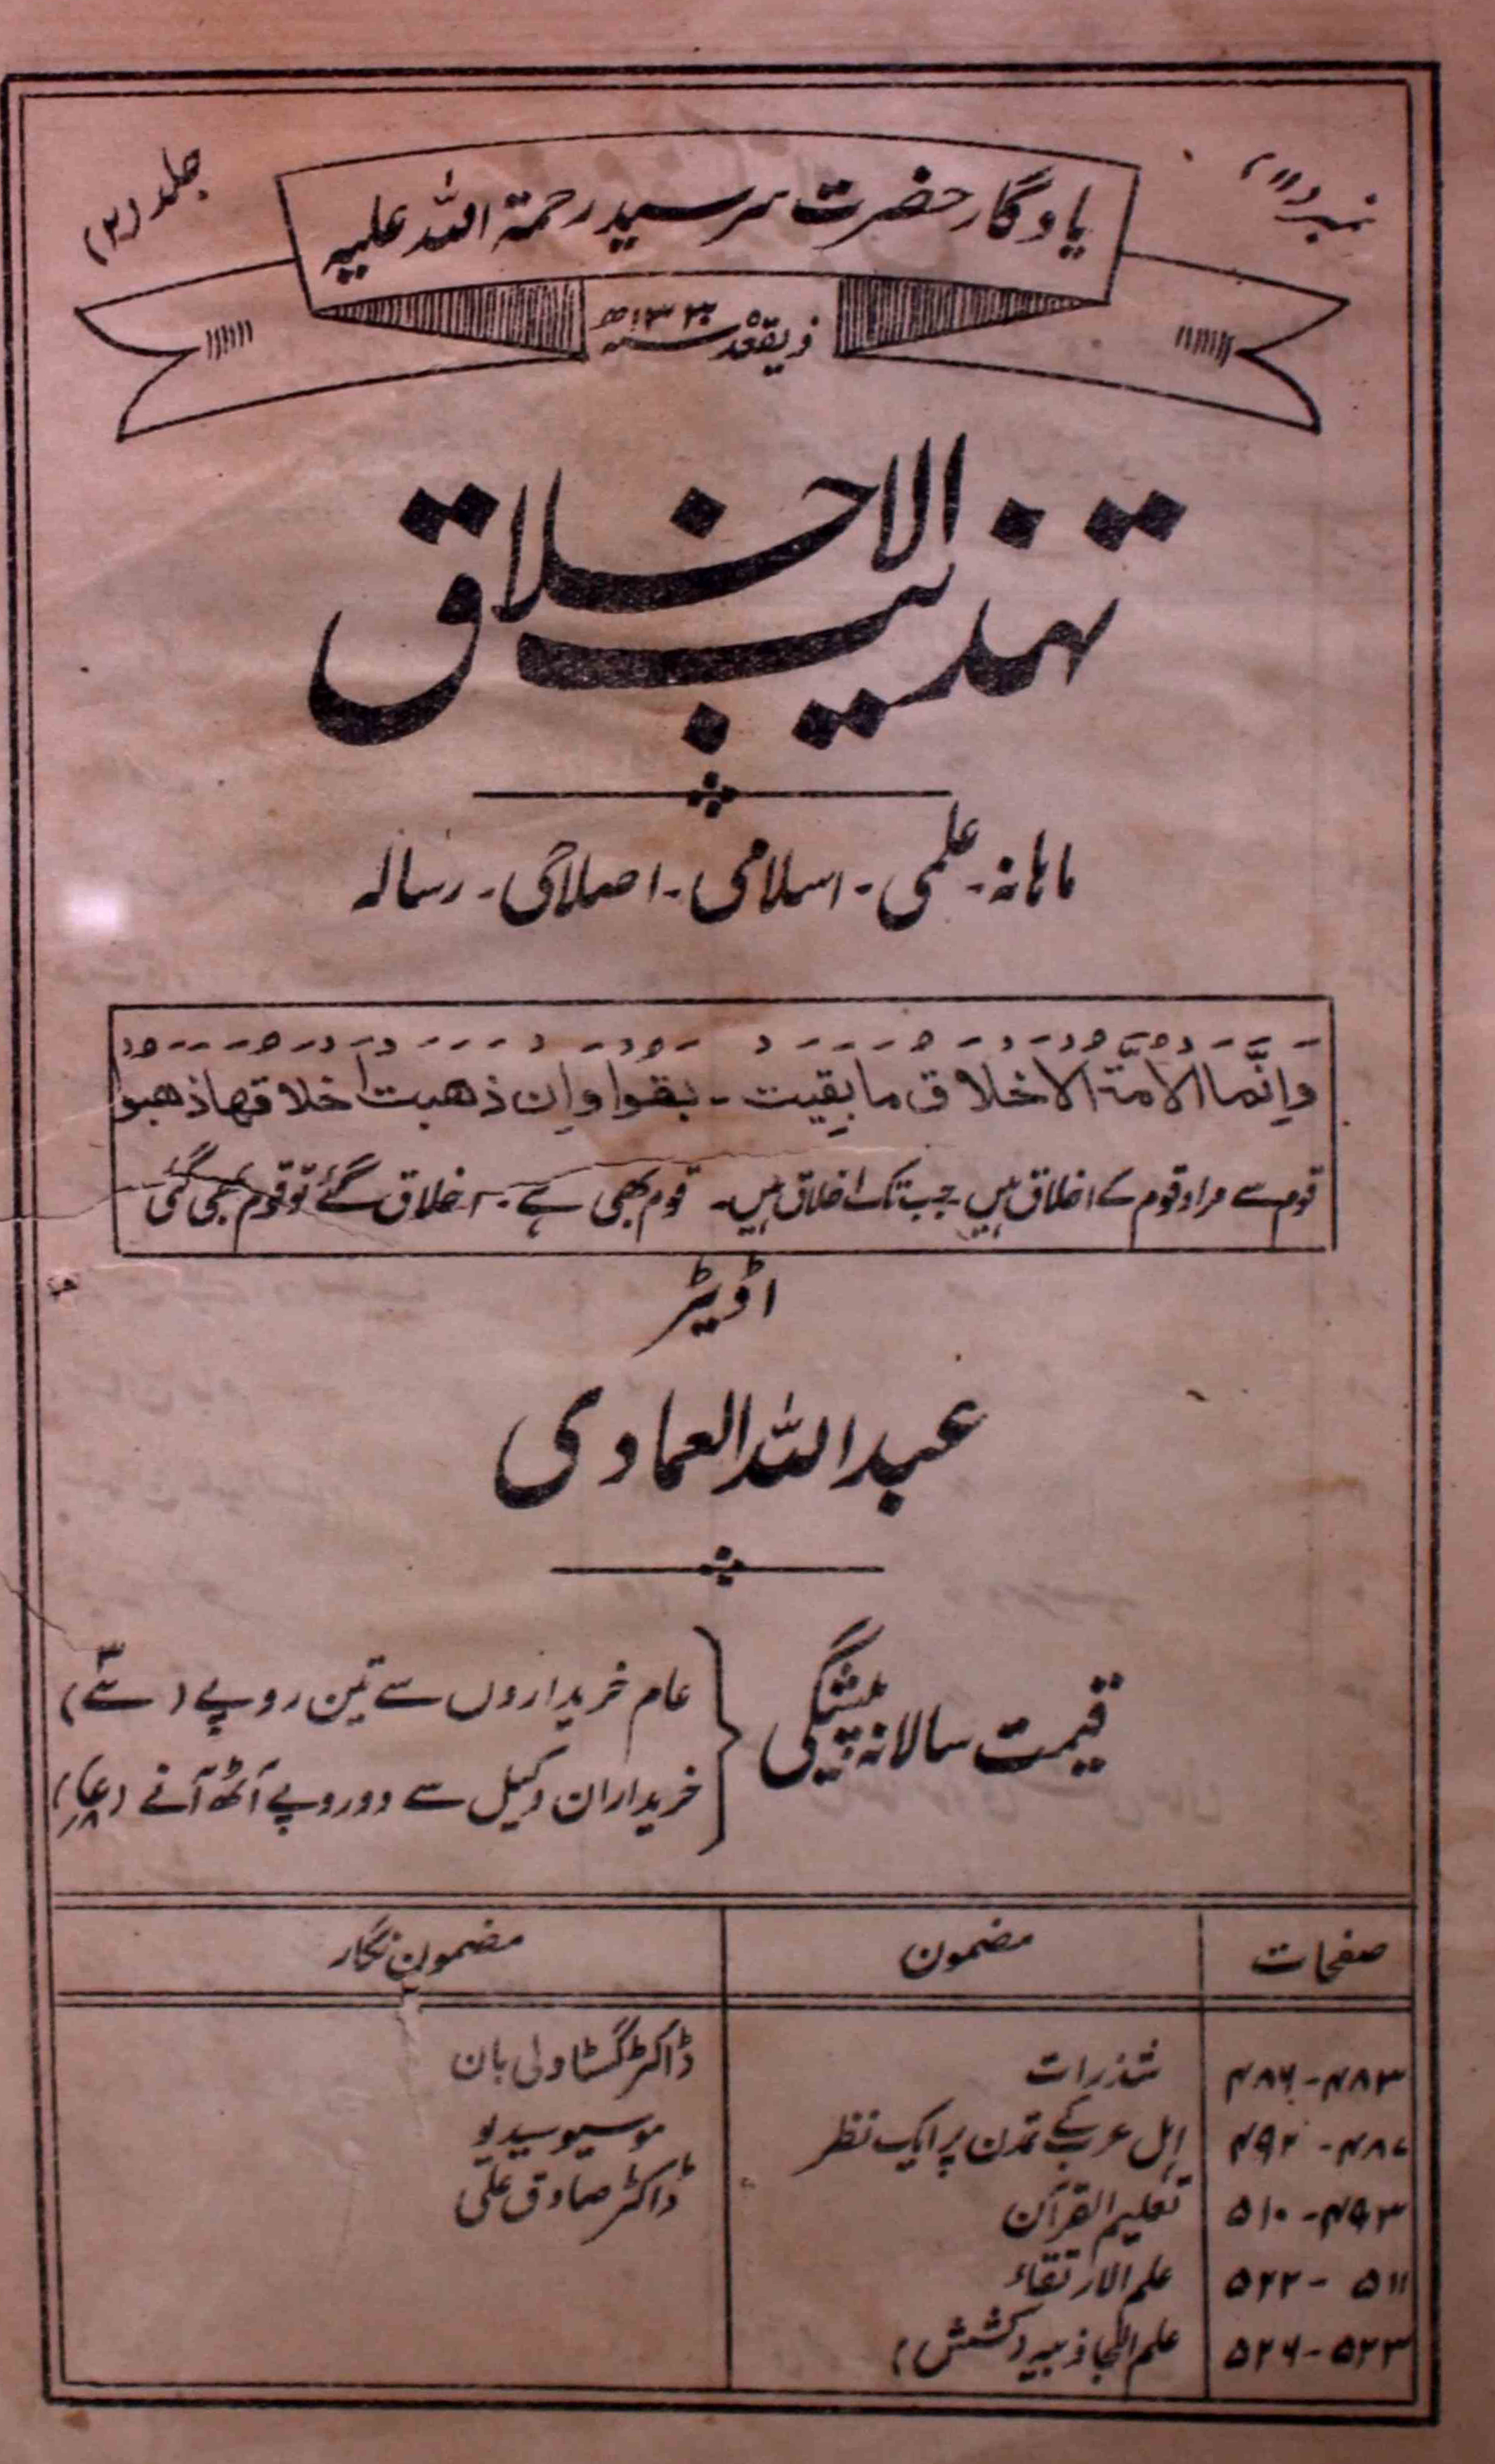 نمبر (۱۱)
جلد (۲)
یادگار حضرت سرسید رحمۃ اللہ علیہ
ذیقعدہ سنہ ۱۳۳۰ھ
تہذیب الاخلاق
ماہانہ - علمی - اسلامی - اصلاحی - رسالہ
وَاِنَّمَا الاُمَّةُ الاَخلَاقُ مَابَقِیَت - بَقَوا وَاِن ذَهَبَت اَخلَاقُهَا ذَهَبُوا
قوم سے مراد قوم کے اخلاق ہیں جب تک اخلاق ہیں - قوم بھی ہے - اخلاق گئے تو قوم بھی گئی
اڈیٹر
عبداللہ العمادی
قیمت سالانہ پیشگی
عام خریداروں سے تین روپے (سے)
خریداران وکیل سے دو روپے آٹھ آنے
صفحات مضمون مضمون نگار
۴۸۳-۴۸۶ شذرات ڈاکٹر گستاولی بان
۴۸۷-۴۹۲ اہل عرب کے تمدن پر ایک نظر موسیو سیدیو
۴۹۳-۵۱۰ تعلیم القرآن ڈاکٹر صادق علی
۵۱۱-۵۲۲ علم الارتقاء
۵۲۳-۵۲۶ علم الجاذبیہ (کشش)